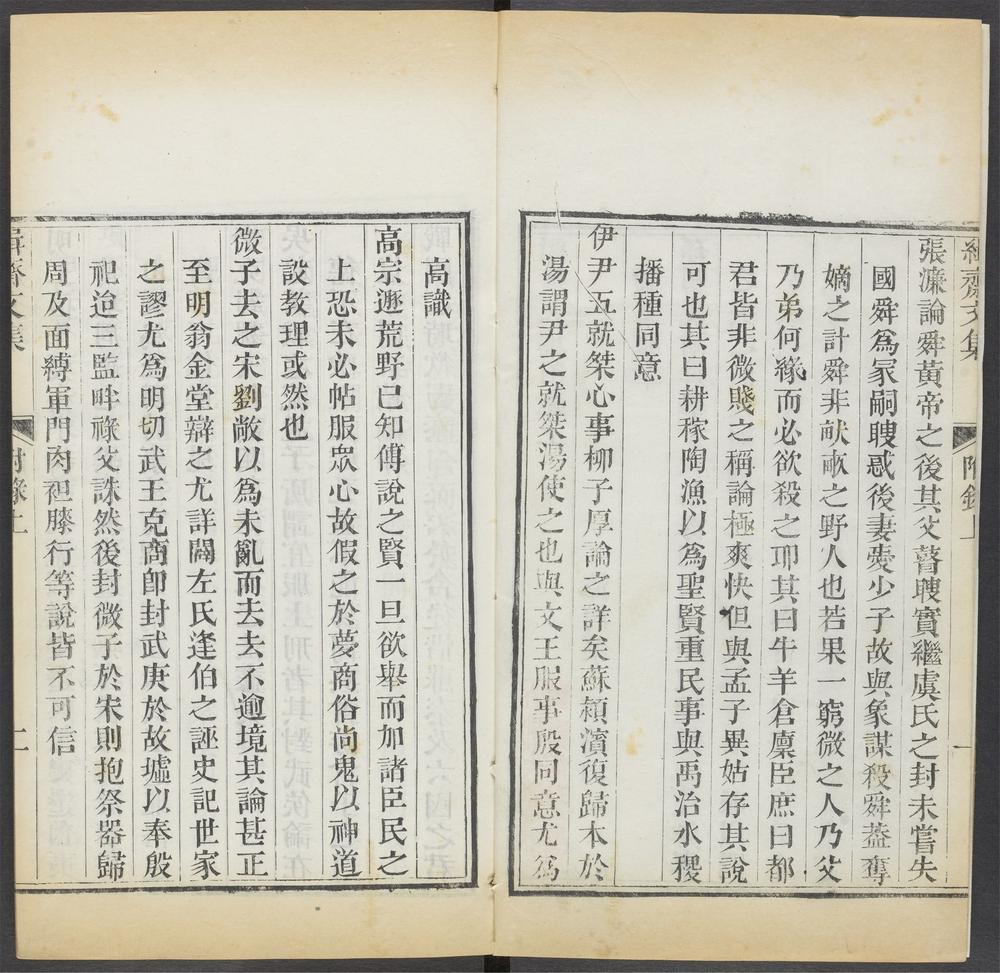 緝齋文集
附錄上
一
張濂論舜黃帝之後其父瞽瞍實繼虞氏之封未嘗失
國舜為冡嗣瞍惑後妻愛少子故與象謀殺舜葢奪
嫡之計舜非畎畝之野人也若果一窮微之人乃父
乃弟何緣而必欲殺之耶其曰牛羊倉廩臣庶曰都
君皆非微賤之稱論極爽快但與孟子異姑存其說
可也其曰耕稼陶漁以為聖賢重民事與禹治水稷
播種同意
伊尹五就桀心事柳子厚論之詳矣蘇潁濱復歸本於
湯謂尹之就桀湯使之也與文王服事殷同意尤為
高識
高宗遯荒野已知傅說之賢一旦欲舉而加諸臣民之
上恐未必帖服眾心故假之於夢商俗尚鬼以神道
設教理或然也
微子去之宋劉敞以為未亂而去去不逾境其論甚正
至明翁金堂辯之尤詳闢左氏逢伯之誣史記世家
之謬尤為明切武王克商卽封武庚於故墟以奉殷
祀迨三監畔祿父誅然後封微子於宋則抱祭器歸
周及面縛軍門肉袒膝行等說皆不可信
緝齋文集
附錄上
二